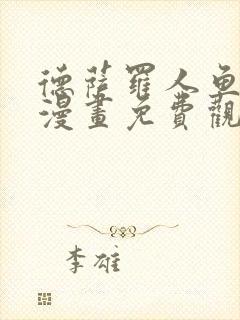 德薩羅人魚
漫畫免費觀
李雄